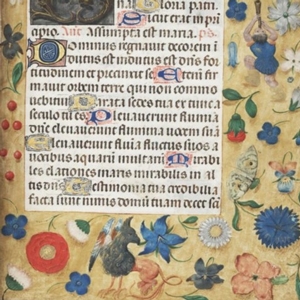 loria patri.
Sicut erat in pri
cipio. Ant Assumpta est maria. ps
Dominus regnauit decorem i
dutus est indutus est dns for
titudinem et precinxit se Eteni fir
mauit orbem terre qui non commo
uebitur Parata sedes tua ex tunc a
seculo tu es Eleuauerunt flumina
dne eleuauerunt flumina uocem sua
Eleuauerunt flumina fluctus suos a
uocibus aquaru multaru Mirabi
les elationes maris mirabilis in al
tis dns Testimonia tua credibilia
facta sunt nimis domu tuam decet sci